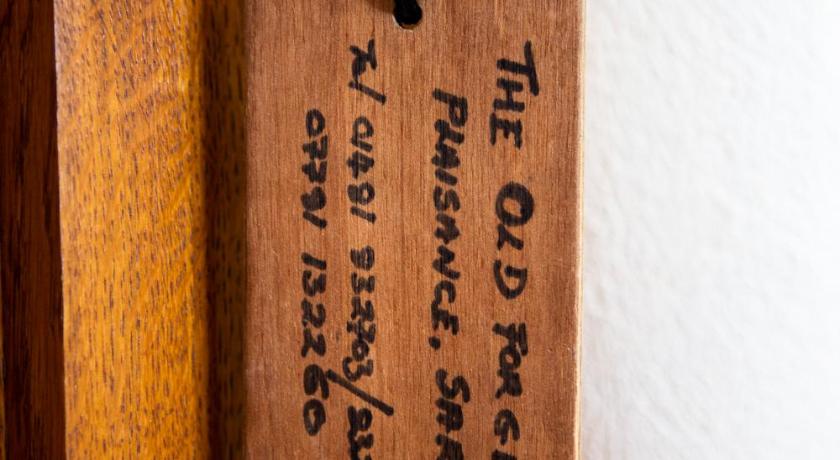 THE OLD FORGE
PLAISANCE, SAR
Tel 01481 832703/
07781 132260